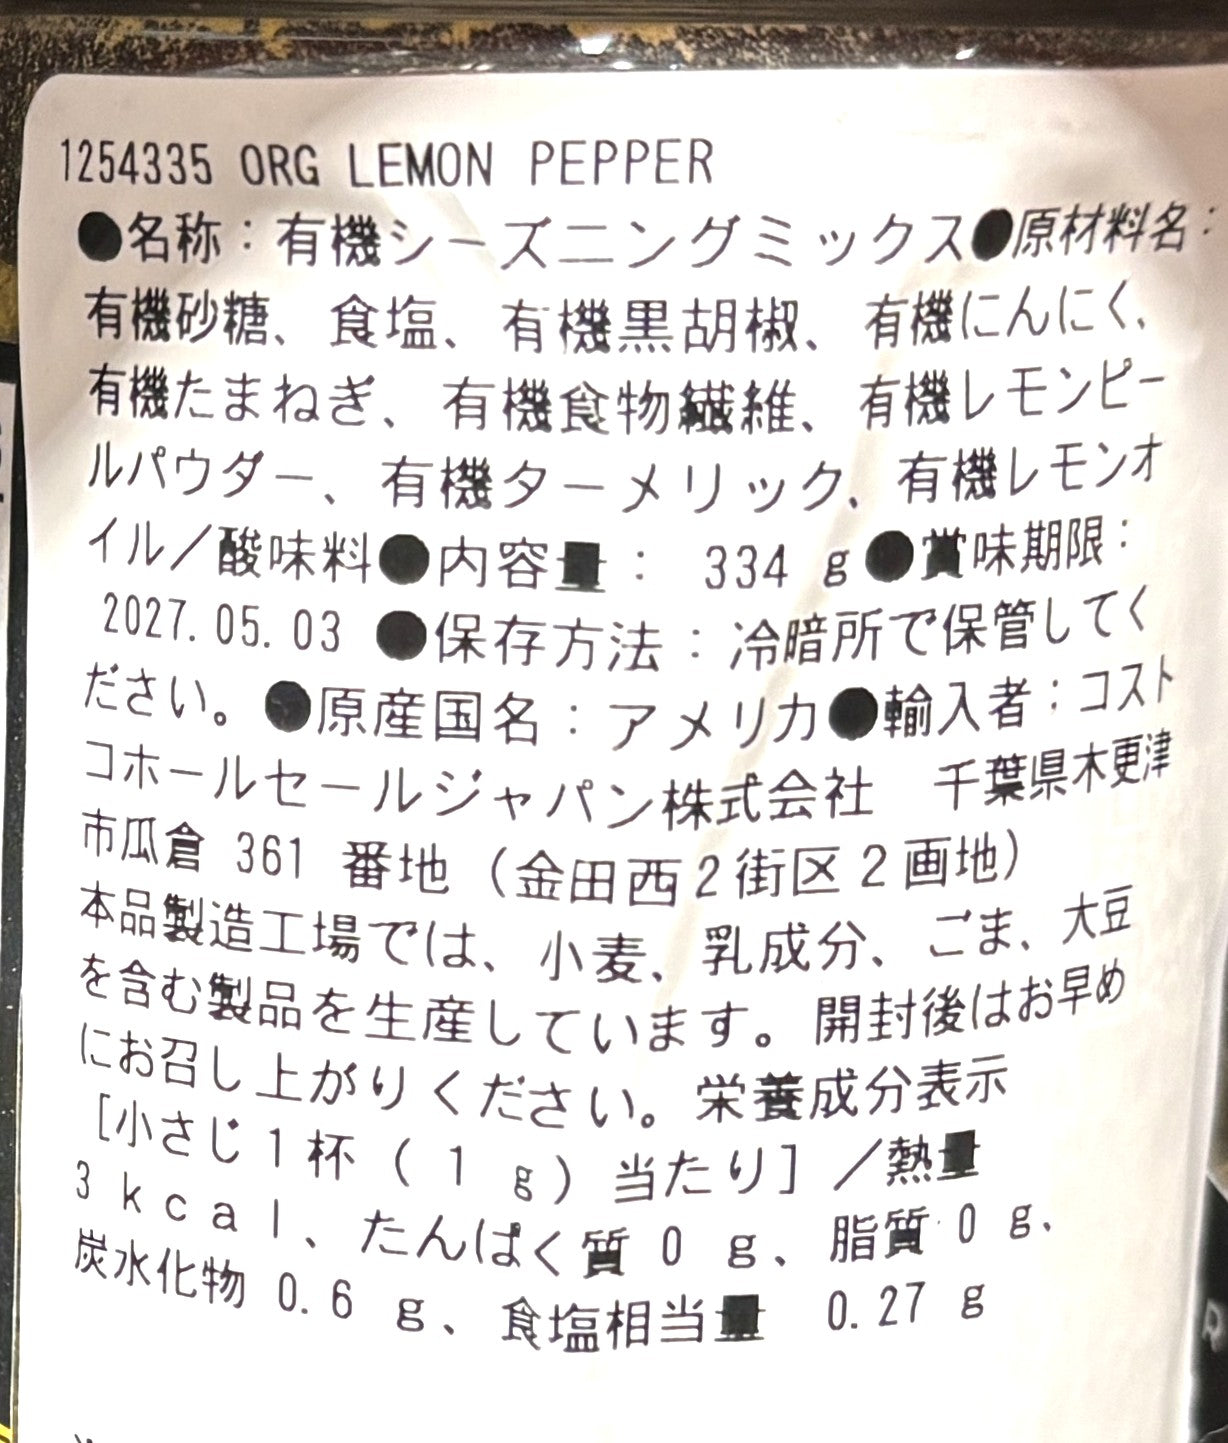 1254335 ORG LEMON PEPPER
●名称：有機シーズニングミックス●原材料名：
有機砂糖、食塩、有機黒胡椒、有機にんにく、
有機たまねぎ、有機食物繊維、有機レモンピー
ルパウダー、有機ターメリック、有機レモンオ
イル／酸味料●内容量： 334 g●賞味期限：
2027.05.03 ●保存方法：冷暗所で保管してく
ださい。●原産国名：アメリカ●輸入者：コスト
コホールセールジャパン株式会社　千葉県木更津
市瓜倉 361 番地（金田西２街区２画地）
本品製造工場では、小麦、乳成分、ごま、大豆
を含む製品を生産しています。開封後はお早め
にお召し上がりください。栄養成分表示
［小さじ１杯（１ｇ）当たり］／熱量
３ｋｃａｌ、たんぱく質０ｇ、脂質０ｇ、
炭水化物 0.6 ｇ、食塩相当量　0.27 ｇ